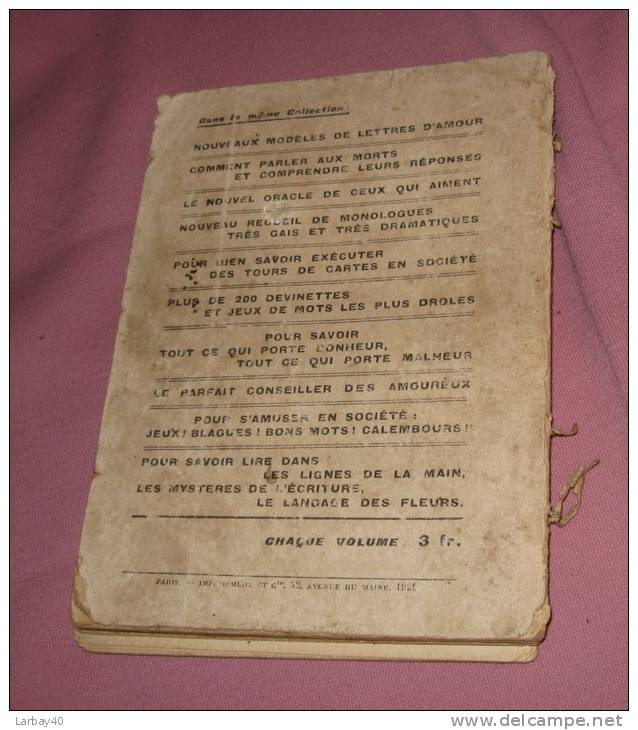 Dans la même Collection :
NOUVEAUX MODÈLES DE LETTRES D'AMOUR
COMMENT PARLER AUX MORTS
ET COMPRENDRE LEURS RÉPONSES
LE NOUVEL ORACLE DE CEUX QUI AIMENT
NOUVEAU RECUEIL DE MONOLOGUES
TRÈS GAIS ET TRÈS DRAMATIQUES
POUR BIEN SAVOIR EXÉCUTER
DES TOURS DE CARTES EN SOCIÉTÉ
PLUS DE 200 DEVINETTES
ET JEUX DE MOTS LES PLUS DROLES
POUR SAVOIR
TOUT CE QUI PORTE BONHEUR,
TOUT CE QUI PORTE MALHEUR
LE PARFAIT CONSEILLER DES AMOUREUX
POUR S'AMUSER EN SOCIÉTÉ :
JEUX ! BLAGUES ! BONS MOTS ! CALEMBOURS !
POUR SAVOIR LIRE DANS
LES LIGNES DE LA MAIN,
LES MYSTÈRES DE L'ÉCRITURE,
LE LANGAGE DES FLEURS.
CHAQUE VOLUME : 3 fr.
PARIS. — IMP. ET Cie, 52, AVENUE DU MAINE.
Larbay40
www.delcampe.net